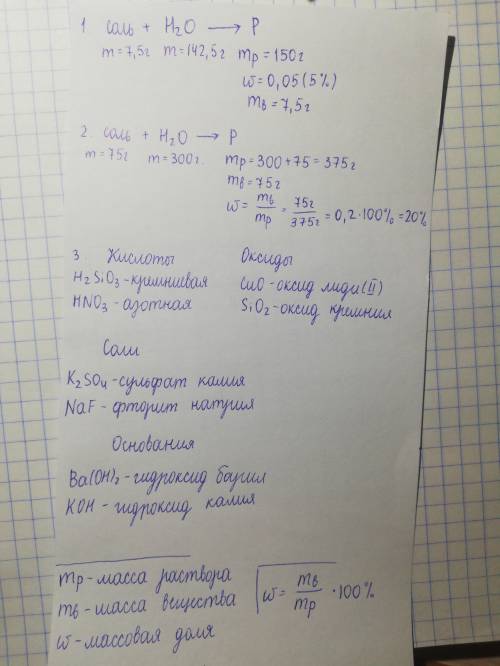 1 соль + H₂O ⟶ P
m = 7,5г m = 142,5г mр = 150г
ω = 0,05 (5%)
mв = 7,5г
2 соль + H₂O ⟶ P
m = 75г m = 300г. mр = 300 + 75 = 375г
mв = 75г
ω = mв/mр = 75г/375г = 0,2 · 100% = 20%
3 Кислоты Оксиды
H₂SiO₃ - кремниевая CuO - оксид меди (II)
HNO₃ - азотная SiO₂ - оксид кремния
Соли
K₂SO₄ - сульфат калия
NaF - фторит натрия
Основания
Ba(OH)₂ - гидроксид бария
KOH - гидроксид калия
mр - масса раствора
mв - масса вещества ω = mв/mр · 100%
ω - массовая доля